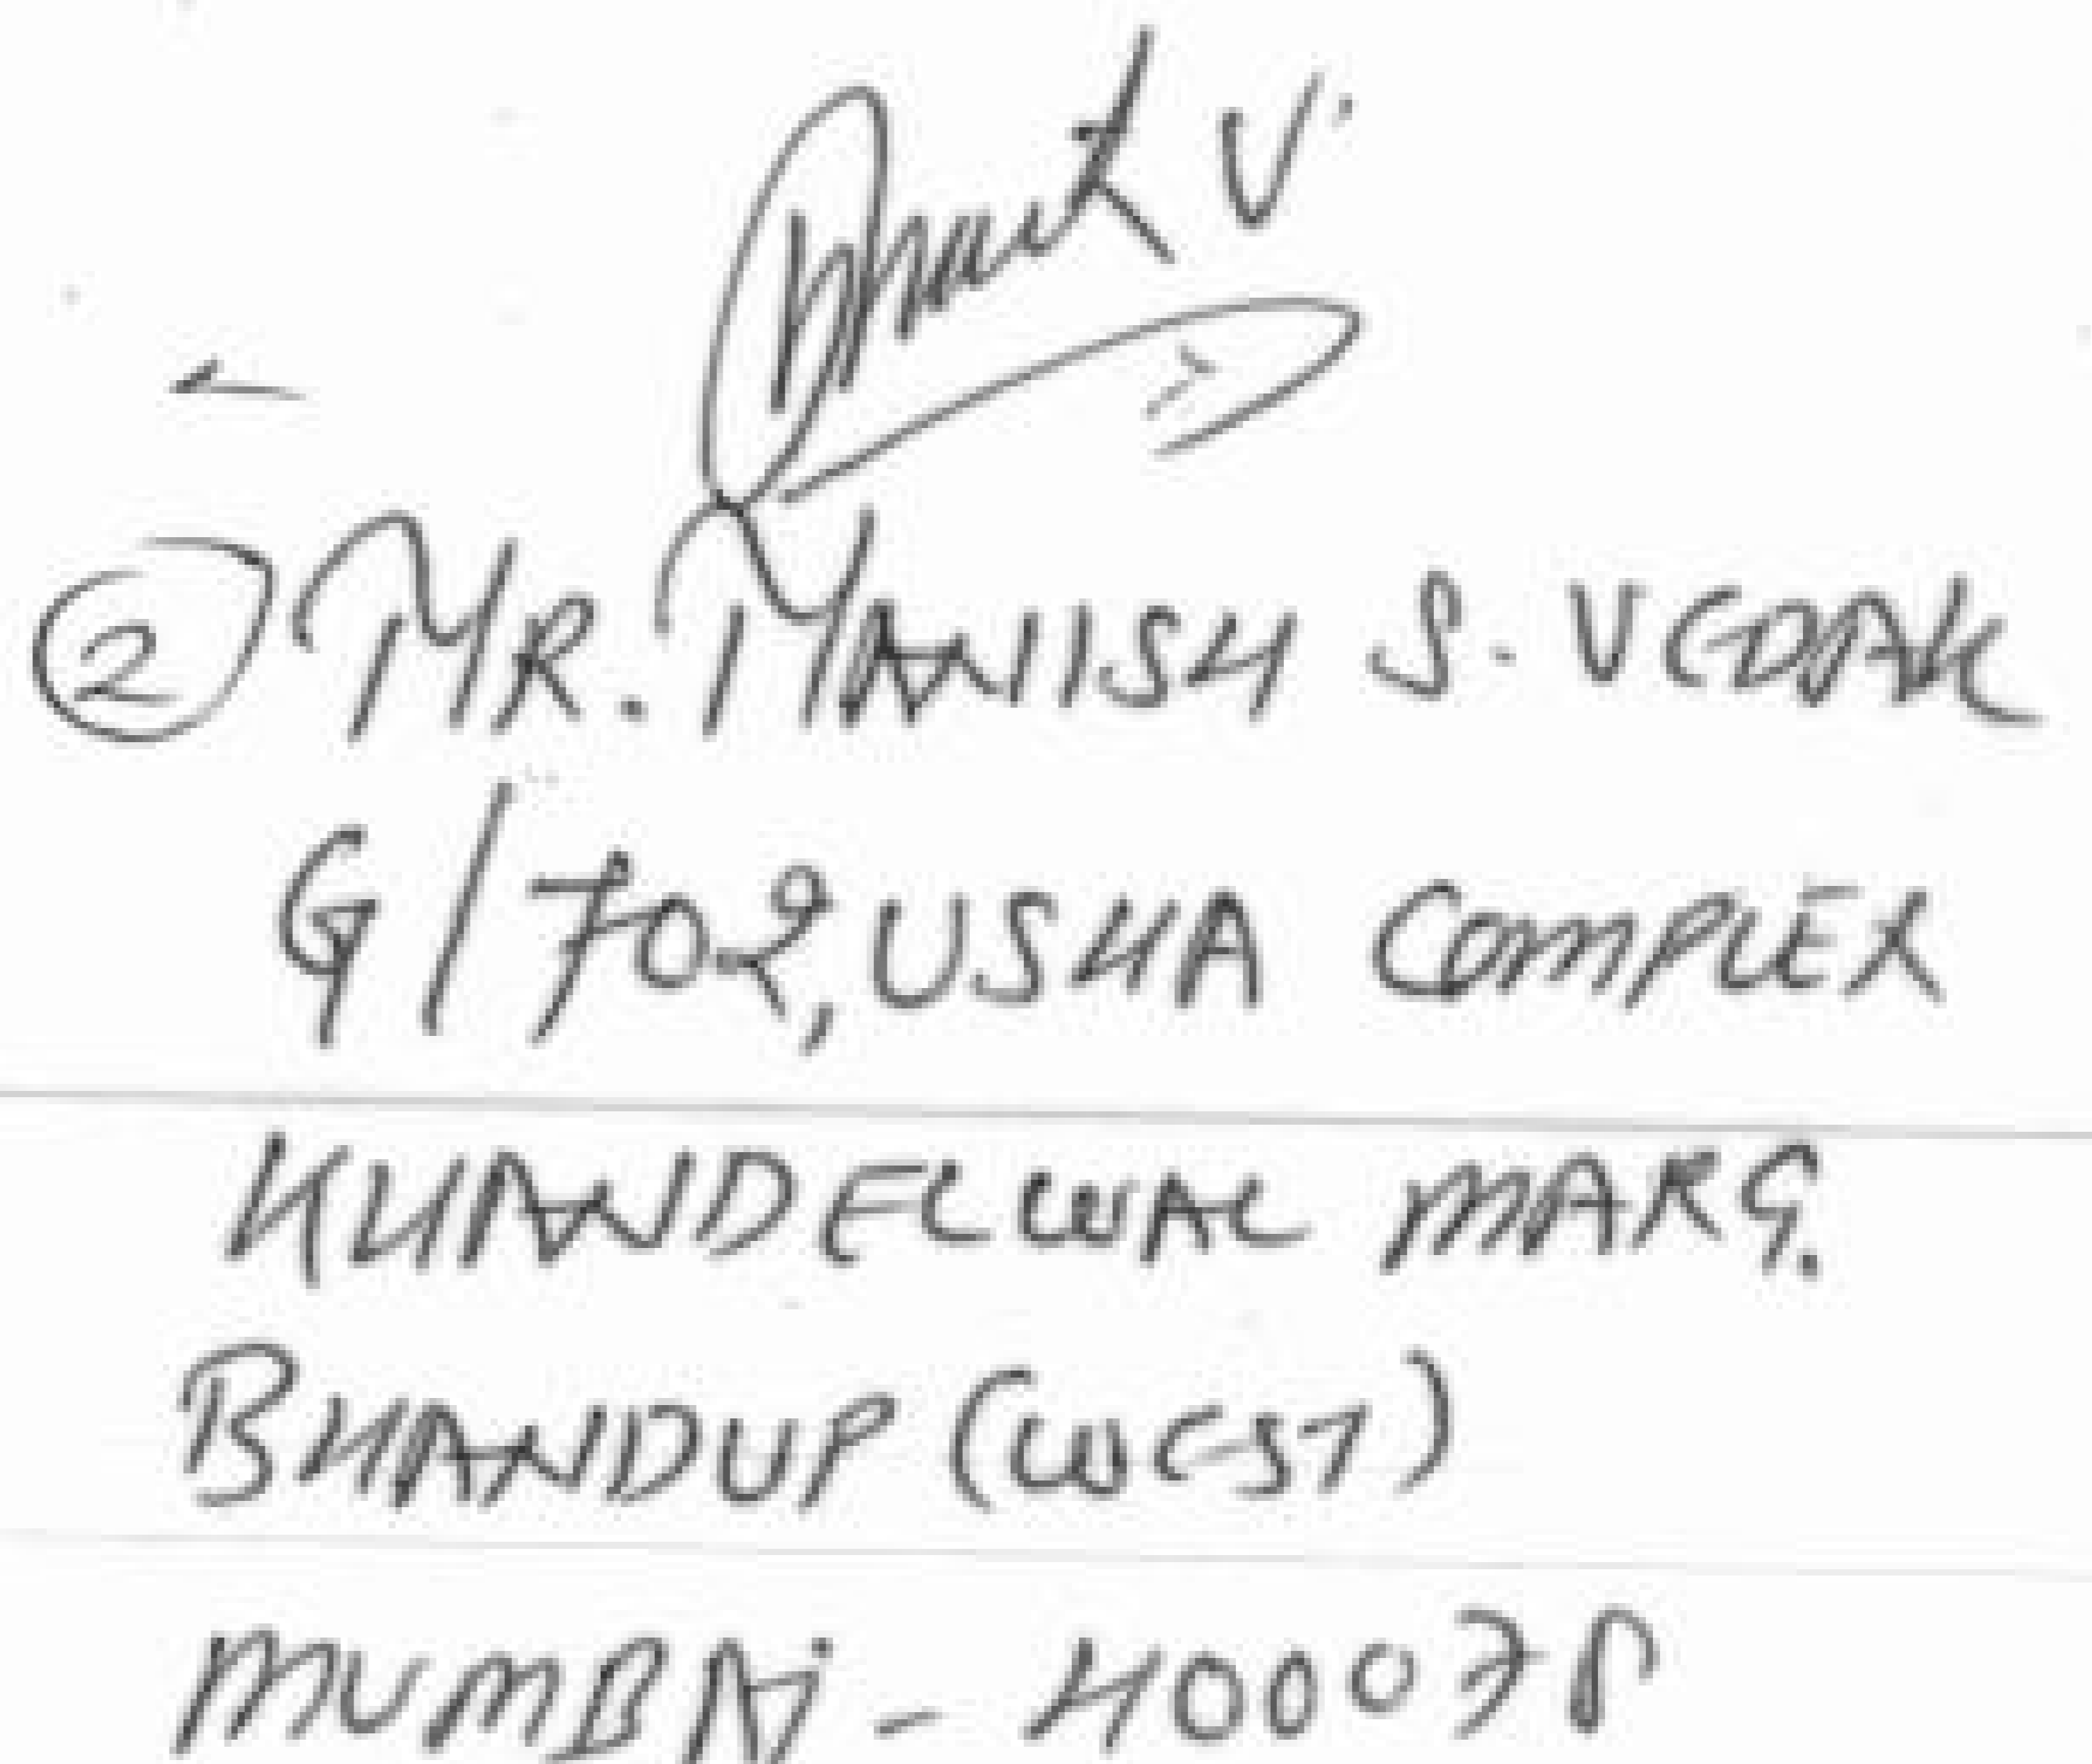 ② MR. MANISH S. VEDAK
G/702, USHA COMPLEX
KHANDELWAL MARG.
BHANDUP (WEST)
MUMBAI - 400078